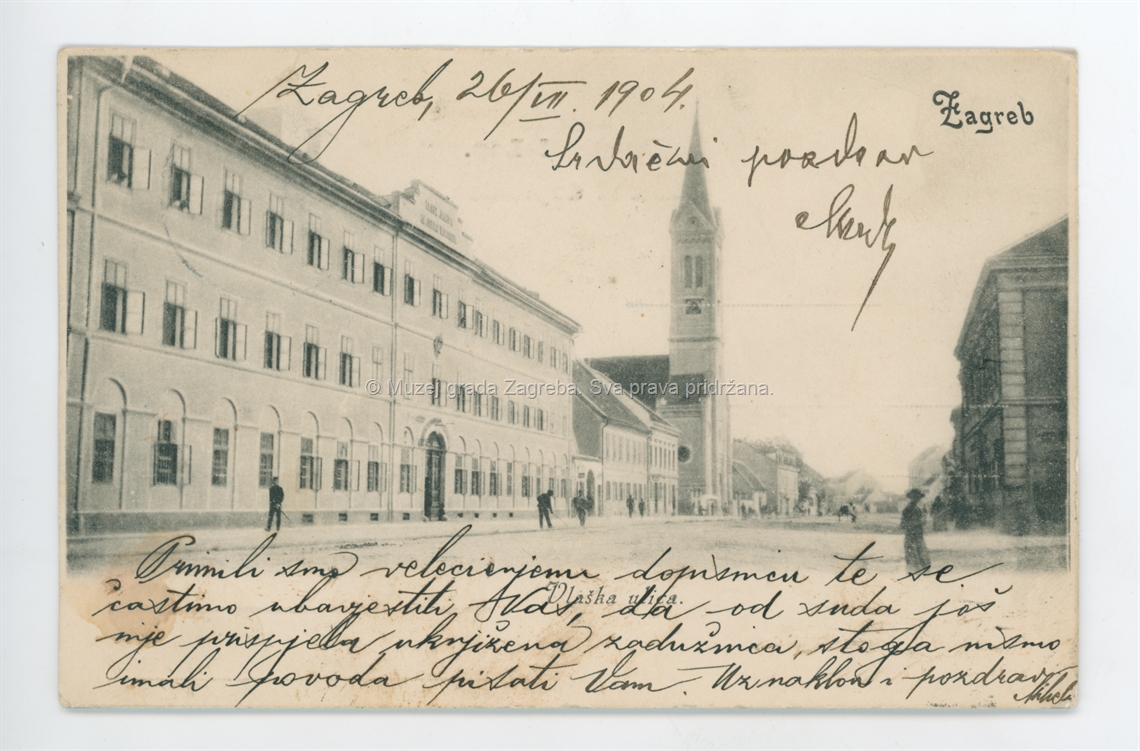 Zagreb, 26/VII. 1904.
Zagreb
Srdačni pozdrav
© Muzej grada Zagreba. Sva prava pridržana.
Primili smo velecijenjenu dopisnicu te se
Vlaška ulica.
častimo ubavjestiti Vas, da od suda još
nije prispjela uknjižena zadužnica, stoga nismo
imali povoda pisati Vam. Uz naklon i pozdrav